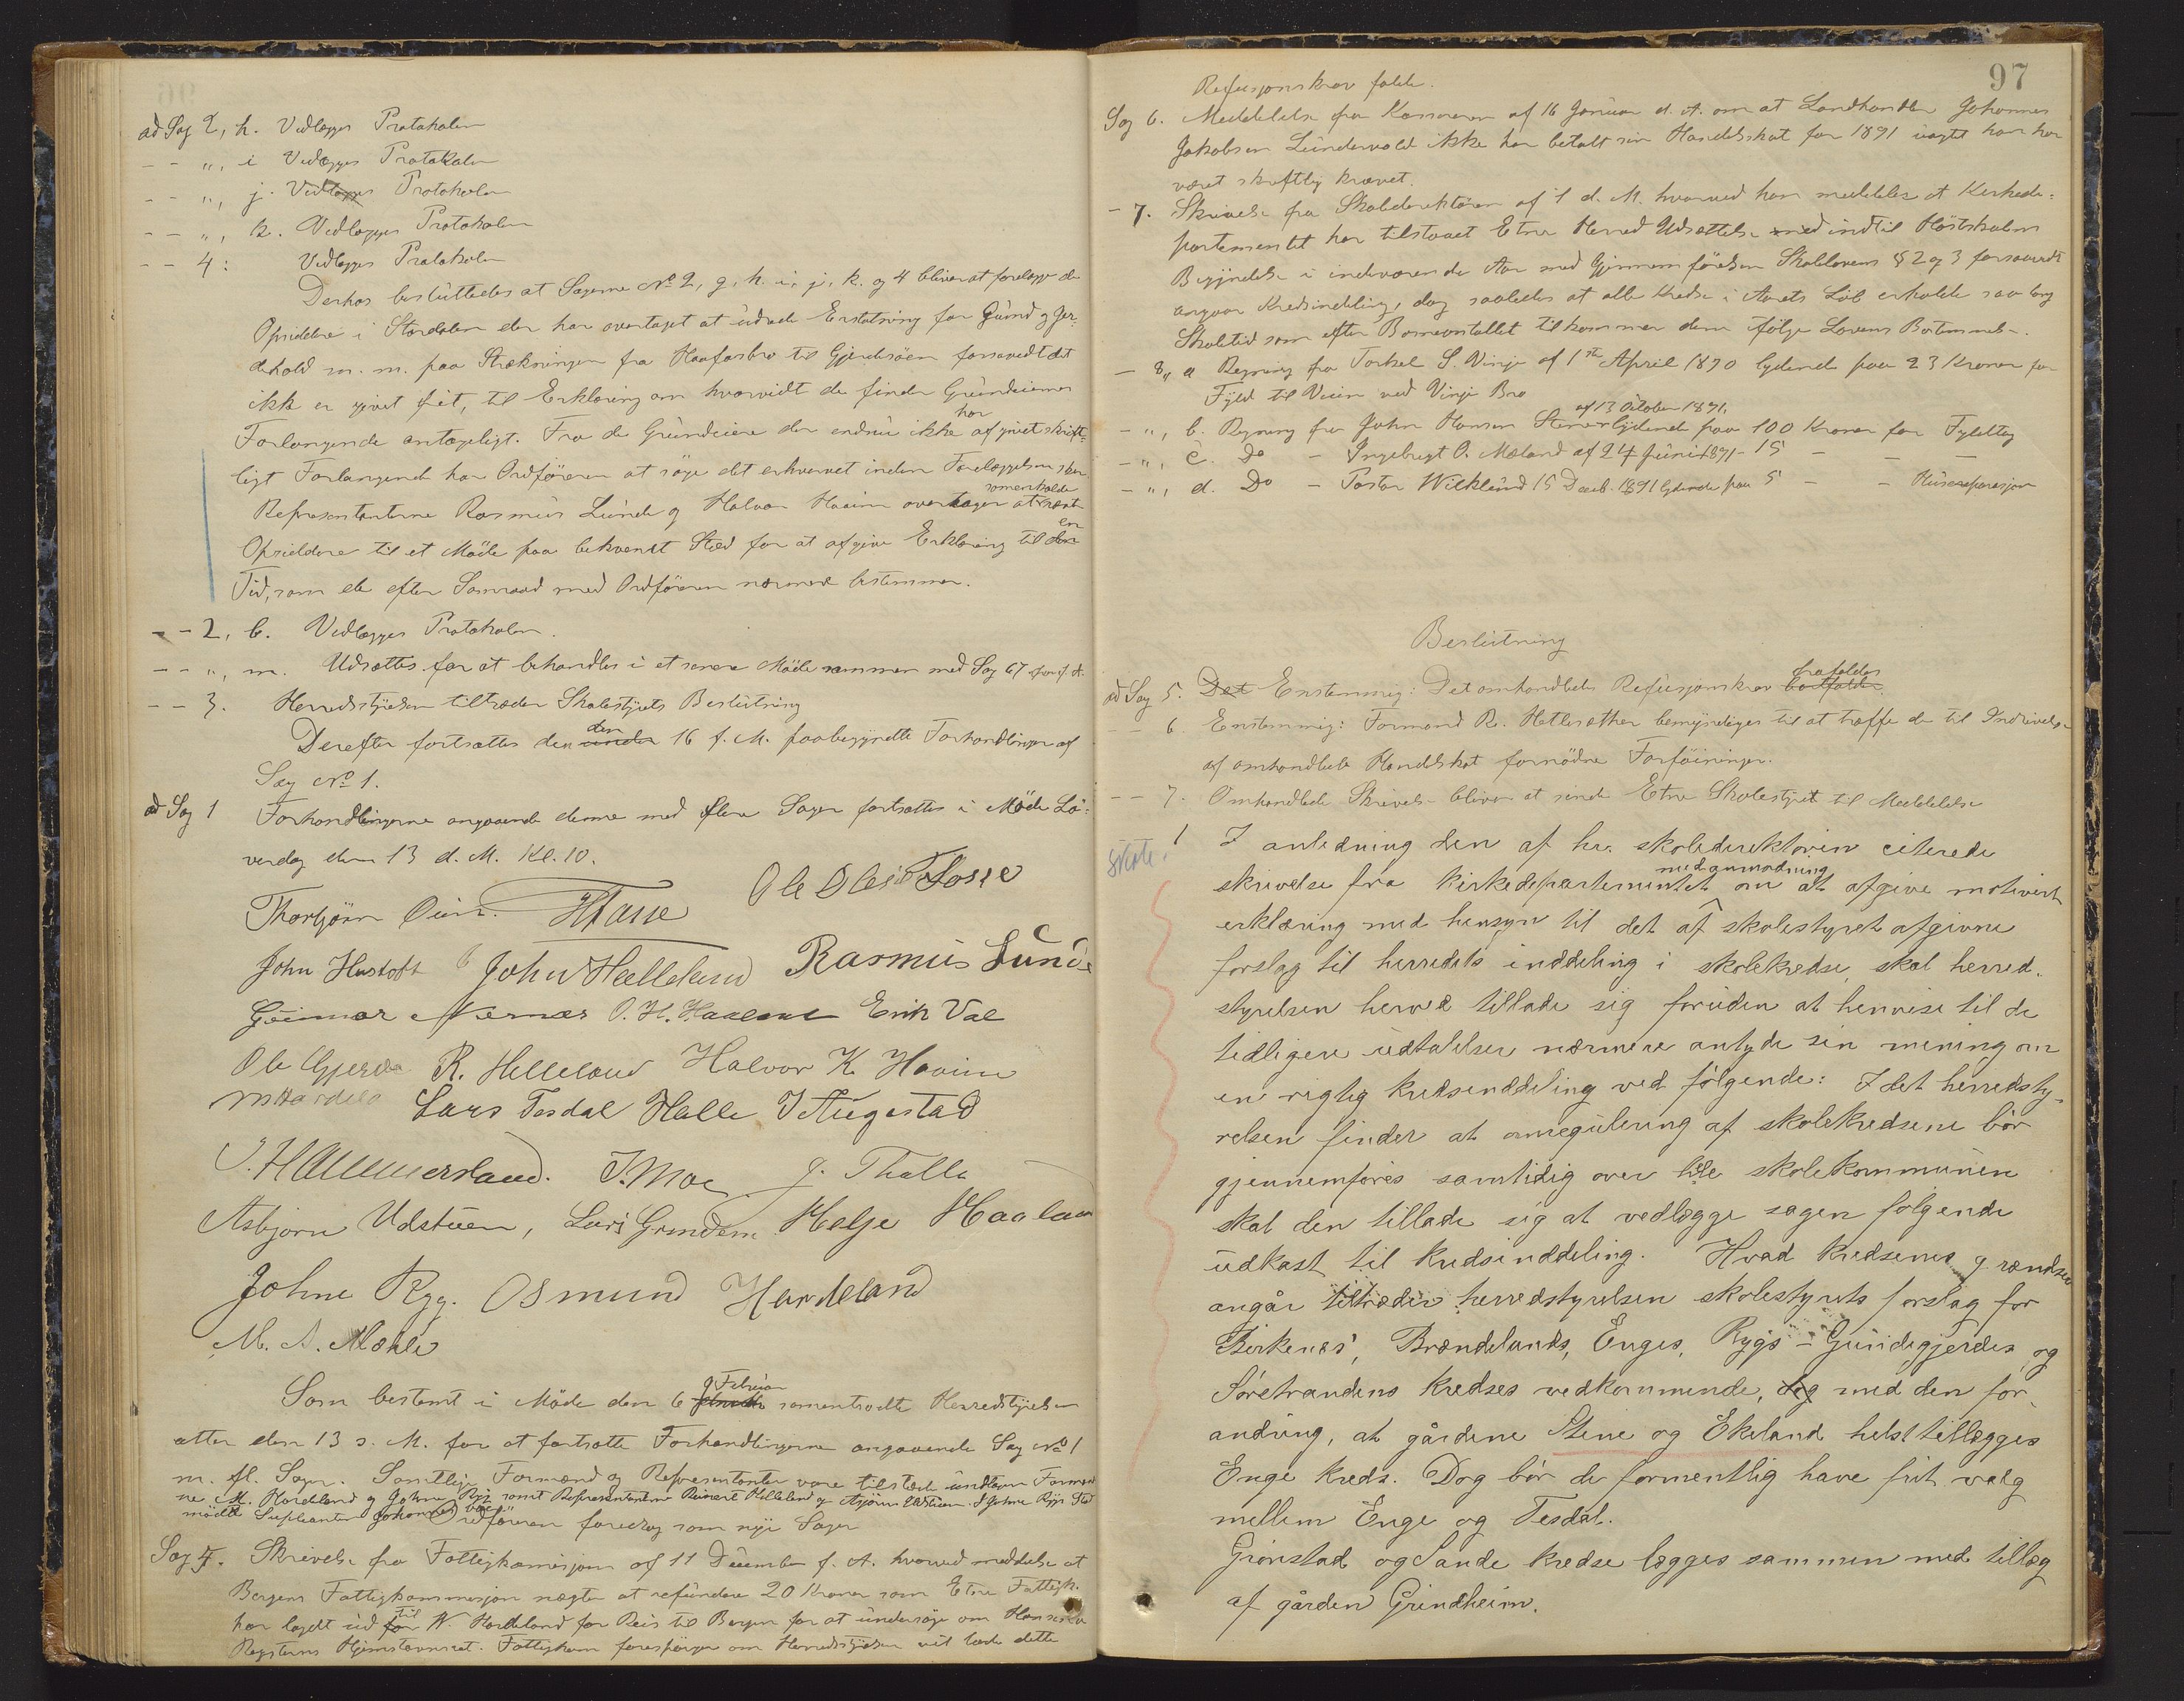 ad Sag 2, h. Vedlægges Protokolen
- - ", i Vedlægges Protokolen
- - ", j. Vedlægges Protokolen
- - ", k. Vedlægges Protokolen
- - 4: Vedlægges Protokolen
Derhos besluttedes at Sagerne No 2, g, h. i, j, k. og 4 bliver at forelægge de
Opsiddere i Stordalen der har overtaget at udrede Erstatning for Grund og Gjer-
dehold m. m. paa Strækningen fra Haafosbro til Gjerdsöen forsaavidt det
ikke er givet frit, til Erklæring om hvorvidt de finder Grundeiernes
Forlangende antageligt. Fra de Grundeiere der endnu ikke har afgivet skrift-
ligt Forlangende har Ordföreren at söge det erhvervet inden Forelæggelsen sker
Repræsentanterne Rasmus Lunde og Halvor Haaim overtager at sammenkalde
Opsiddere til et Möde paa bekvemt Sted for at afgive Erklæring til en
Tid, som de efter Samraad med Ordföreren nærmere bestemmer.
- - 2, b. Vedlægges Protokolen.
- - ", m. Udsættes for at behandles i et senere Möde sammen med Sag 67 for f. A.
- - 3. Herredsstyrelsen tiltræder Skolestyrets Beslutning
Derefter fortsattes den den 16 f. M. paabegyndte Forhandlinger af
Sag No 1.
ad Sag 1 Forhandlingerne angaaende denne med flere Sager fortsættes i Möde Lö-
verdag den 13 d. M. Kl. 10.
Thorbjörn HTasse Ole Olsen Fosse
John Hustoft John Helleland Rasmus Lunde
Gunnar Nernes O. H. Haaland Erik Val
Ole Gjerde R. Helleland Halvor K. Haaim
M Hardeld Lars Tesdal Halle J Augestad
J. Hammersland. J. Moe J. Thalle
Asbjorn Udstuen, Lars Grindem Helje Haaland
Johne Ryg. Osmund Hardeland
M. A. Mæhle
Som bestemt i Möde den 6 Februar samentraadte Herredsstyrelsen
atter den 13 s. M. for at fortsætte Forhandlingerne angaaende Sag No 1
m. fl. Sager. Samtlige Formænd og Repræsentanter vare tilstede undtagen Formænd
ne M. Hardeland og Johne Ryg samt Repræsentanterne Reinert Helleland og Asjörn Udstuen. I Johne Rygs Sted
mödte Supleanten Johannes Ordföreren foredrog som nye Sager
Sag 5. Skrivelse fra Fattigkomisjonen af 11 Desember f. A. hvorved meddeles at
Bergens Fattigkommisjon nægter at refundere 20 Kroner som Etne Fattigk.
har lagdt ud til N. Hardeland for Reis til Bergen for at undersöge om Hans
Hjemstavnsret. Fattigkom forespörger om Herredsstyrelsen vil lade dette
97
Refusjonskrav falde.
Sag 6. Meddelelse fra Kassereren af 16 Januar d. A. om at Landhandler Johannes
Jakobsen Lundevold ikke har betalt sin Handelsskat for 1891 uagtet han har
været skriftlig krævet.
- 7. Skrivelse fra Skoledirektören af 1 d. M. hvorved han meddeler at Kirkede-
partementet har tilstaaet Etne Herred Udsættelse med indtil Höstskolens
Begyndelse i indeværende Aar med Gjennemförelsen Skolelovens § 2 og 3 forsaavidt
angaar Kredsinddeling, dog saaledes at alle Kredse i Aarets Löb erholde saa lang
Skoletid som efter Börneantallet tilkommer dem ifölge Lovens Bestemmelse.
- 8, a Regning fra Torkel S. Vinje af 1ste April 1890 lydende paa 23 Kroner for
Fyld til Veien ved Vinje Bro
- ", b. Regning fra John Hansen Stene af 13 Oktober 1891. lydende paa 100 Kroner for Fyldtag
- ", c. Do - Ingebregt O. Mæland af 24 Juni 1891 - 15 - - -
- ", d. Do - Pastor Wicklund 15 Decb. 1891 lydende paa 5 - - Husreparasjon
Beslutning
ad Sag 5. Det Enstemmig: Det omhandlede Refusjonskrav bortfalder frafaldes
- - 6 Enstemmig: Formand R. Hetlesæther bemyndiges til at træffe de til Indrivelse
af omhandlede Handelskat fornödne Forföininger.
- - 7. Omhandlede Skrivelse bliver at sende Etne Skolestyret til Meddelelse
Skole. 1 I anledning den af hr. skoledirektøren citerede
skrivelse fra kirkedepartementet med anmodning om at afgive motivert
erklæring med hensyn til det af skolestyret afgivne
forslag til herredets inddeling i skolekredse, skal herred-
styrelsen herved tillade sig foruden at henvise til de
tidligere udtalelser nærmere antyde sin mening om
en rigtig kredsinddeling ved følgende: I det herredsty-
relsen finder at omregulering af skolekredsene bør
gjennemføres samtidig over hele skolekommunen
skal den tillade sig at vedlægge sagen følgende
udkast til kredsinddeling. Hvad kredsenes grændser
angår tiltræder herredstyrelsen skolestyrets forslag for
Birkenes', Brændelands, Enges, Rygs - Gundegjerdes og
Sørstrandens kredses vedkommende, dog med den for-
andring, at gårdene Stene og Ekeland helst tillægges
Enge kreds. Dog bør de formentlig have frit valg
mellem Enge og Tesdal.
Grønstad og Sande kredse lægges sammen med tillæg
af gården Grindheim.